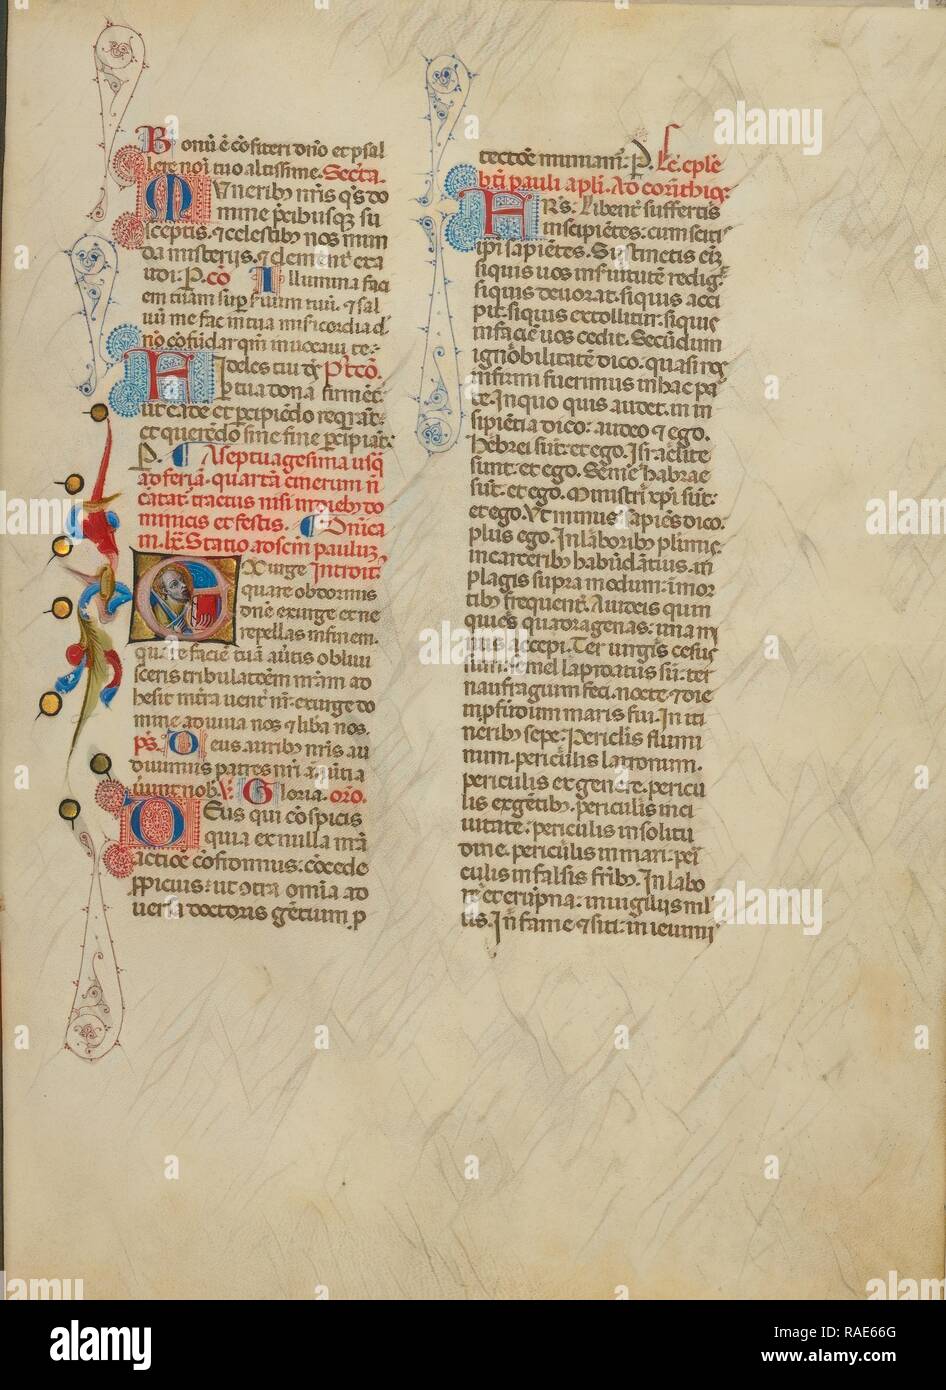 Bonū ē cōfiteri dn̄o et psal
lere noī tuo altissime. Secr̄a.
Muneribȝ nr̄is qs̄ do
mine p̄cibusqȝ su
sceptis. ⁊ celestibȝ nos mun
da misterijs. ⁊ clement̄ exa
udi. P. cō Illumina faci
em tuam sup̄ ſuum tuū. ⁊ sal
uū me fac in tua misericordia d̄
nō cōfūdar qm̄ inuocaui te.
Fideles tui ds̄ Pt̄ cō.
p̄ tua dona firment̄
ut eade et p̄cipiēdo reqrant̄
et querēdo sine fine p̄cipiant̄
P. A septuagesima usqȝ
ad feriā quartā cinerum n̄
cātat̄ tractus nisi in diebȝ do
minicis et festis. Dn̄ica
in lx̄. Statio ad scm̄ paulūȝ
Exurge Introit̄
quare obdormis
dn̄e exurge et ne
repellas in finem.
quare faciē tuā auertis obliui
sceris tribulatōem nr̄am ad
hesit in tr̄a uent̄ nr̄ exurge do
mine adiuua nos ⁊ liba nos.
ps̄. Deus auribȝ nr̄is au
diuimus patres nr̄i
nob̄. V. Gloria. or̄o.
Deus qui cōspicis
quia ex nulla nr̄a
actiōe cōfidimus: cōcede
ꝓpicius: ut ctra om̄ia ad
uersa doctoris gētium p
tectōe muniam̄: P. Lc̄. eple
bt̄i pauli apl̄i. Ad corinthiqȝ
Frs̄: Libent̄ suffertis
insipiētes: cum sitis
ip̄i sapiētes. Sustinetis eīȝ
siquis uos in s̄uitutē rediḡ
siquis deuorat. siquis acci
pit. siquis extollitur. siquis
in faciē uos cedit. Secūdum
ignōbilitatē dico. quasi nos
infirmi fuerimus in hac pa
te. In quo quis audet. in in
sipiētia dico: audeo ⁊ ego.
Hebrei sūt: et ego. Isr̄aelite
sunt: et ego. Semē habrae
sūt: et ego. Ministri xp̄i sūt:
et ego. Vt minus sapiēs dico.
plus ego. In laboribȝ plimis
in carceribȝ habūdātius. in
plagis supra modum: in mor
tibȝ frequent̄. A iudeis quin
quies quadragenas: una mi
nus accepi. Ter uirgis cesus
sum: semel lapidatus sū: ter
naufragium feci. nocte ⁊ die
in p̄fūdum maris fui. In iti
neribȝ sepe: Periclis flumi
num. periculis latronum.
periculis ex genere. pericu
lis ex gētibȝ. periculis in ci
uitate. periculis in solitu
dine. periculis in mari: peri
culis in falsis fr̄ibȝ. In labo
re et erūpna: in uigilijs ml̄
tis. In fame ⁊ siti: in ieiunij
alamy
Image ID: RAE66G
www.alamy.com